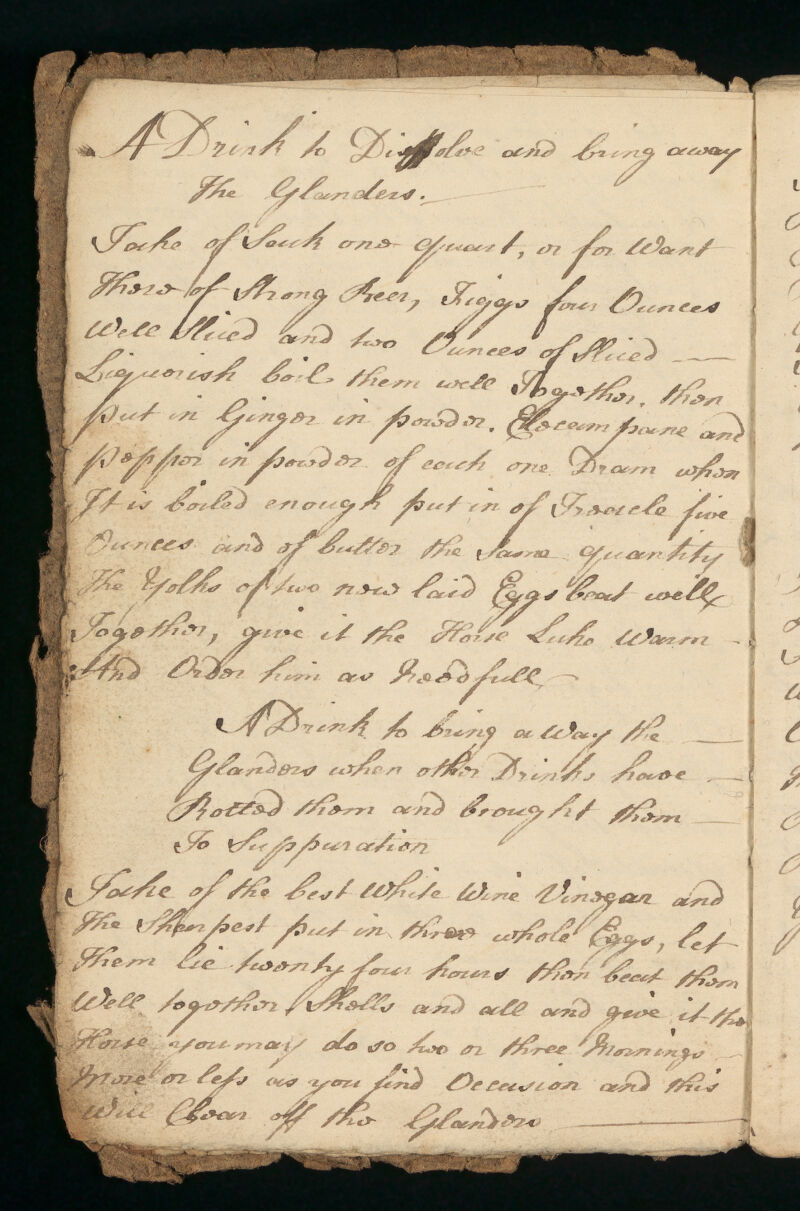 A Drink to Dissolve and bring away
The Glanders.
Take of Sack one quart, or for Want
There of Strong Beer, Figgs four Ounces
Well Sliced and two Ounces of Sliced
Liquorish boil them well Together. then
put in Ginger in powder. Elecampane and
pepper in powder of each one Dram when
It is boiled enough put in of Treacle five
Ounces and of butter the same quantity
The Yolks of two new laid Eggs beat well
Together, give it the Horse Luke Warm
And Order him as Needfull
A Drink to bring a Way the
Glanders when other Drinks have
Rotted them and brought them
To Suppuration
Take of the best White Wine Vinegar and
The Sharpest put in three whole Eggs, let
Them lie twenty four hours then beat them
Well together Shells and all and give it the
Horse you may do so two or three Mornings
More or less as you find Occasion and this
Will Clear off the Glanders